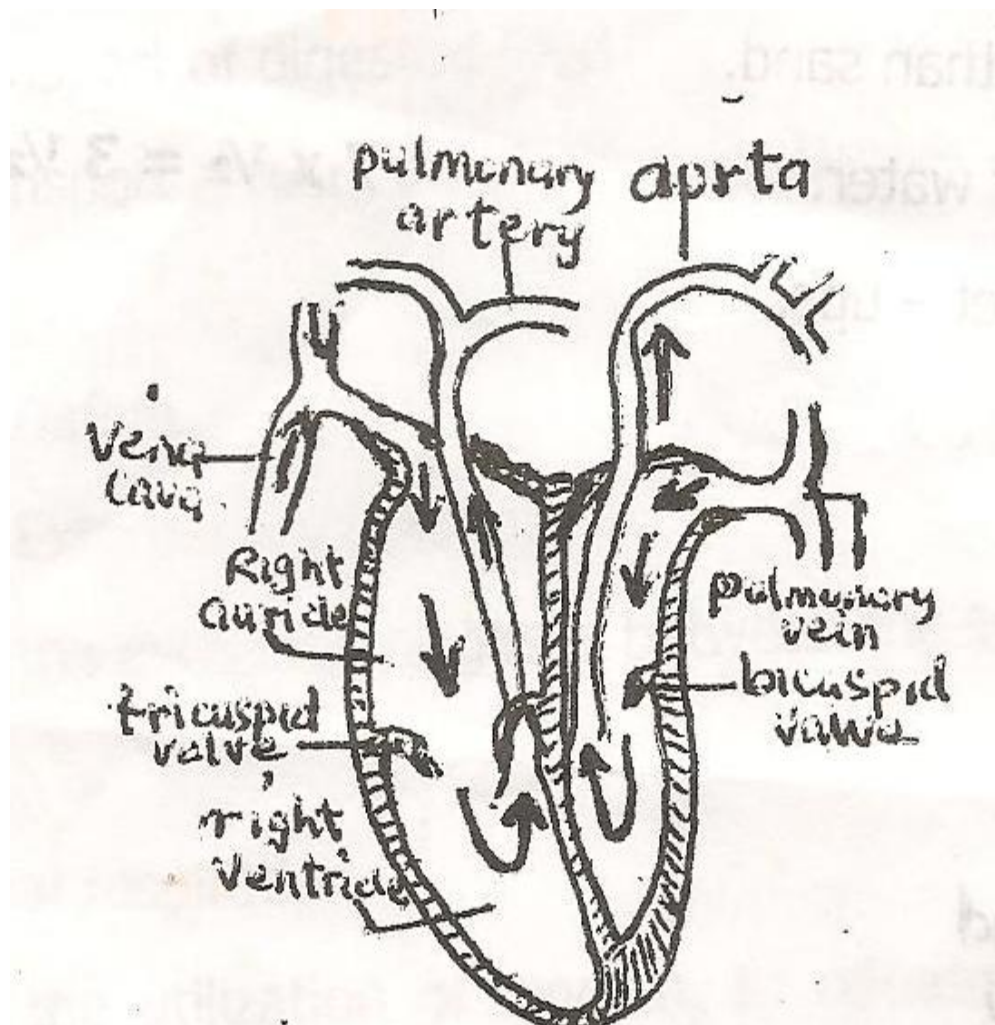 than sand.
water.
x ½ = 3 ½
pulmonary
artery
aorta
Vena
cava
Right
auricle
tricuspid
valve
right
ventricle
pulmonary
vein
bicuspid
valve